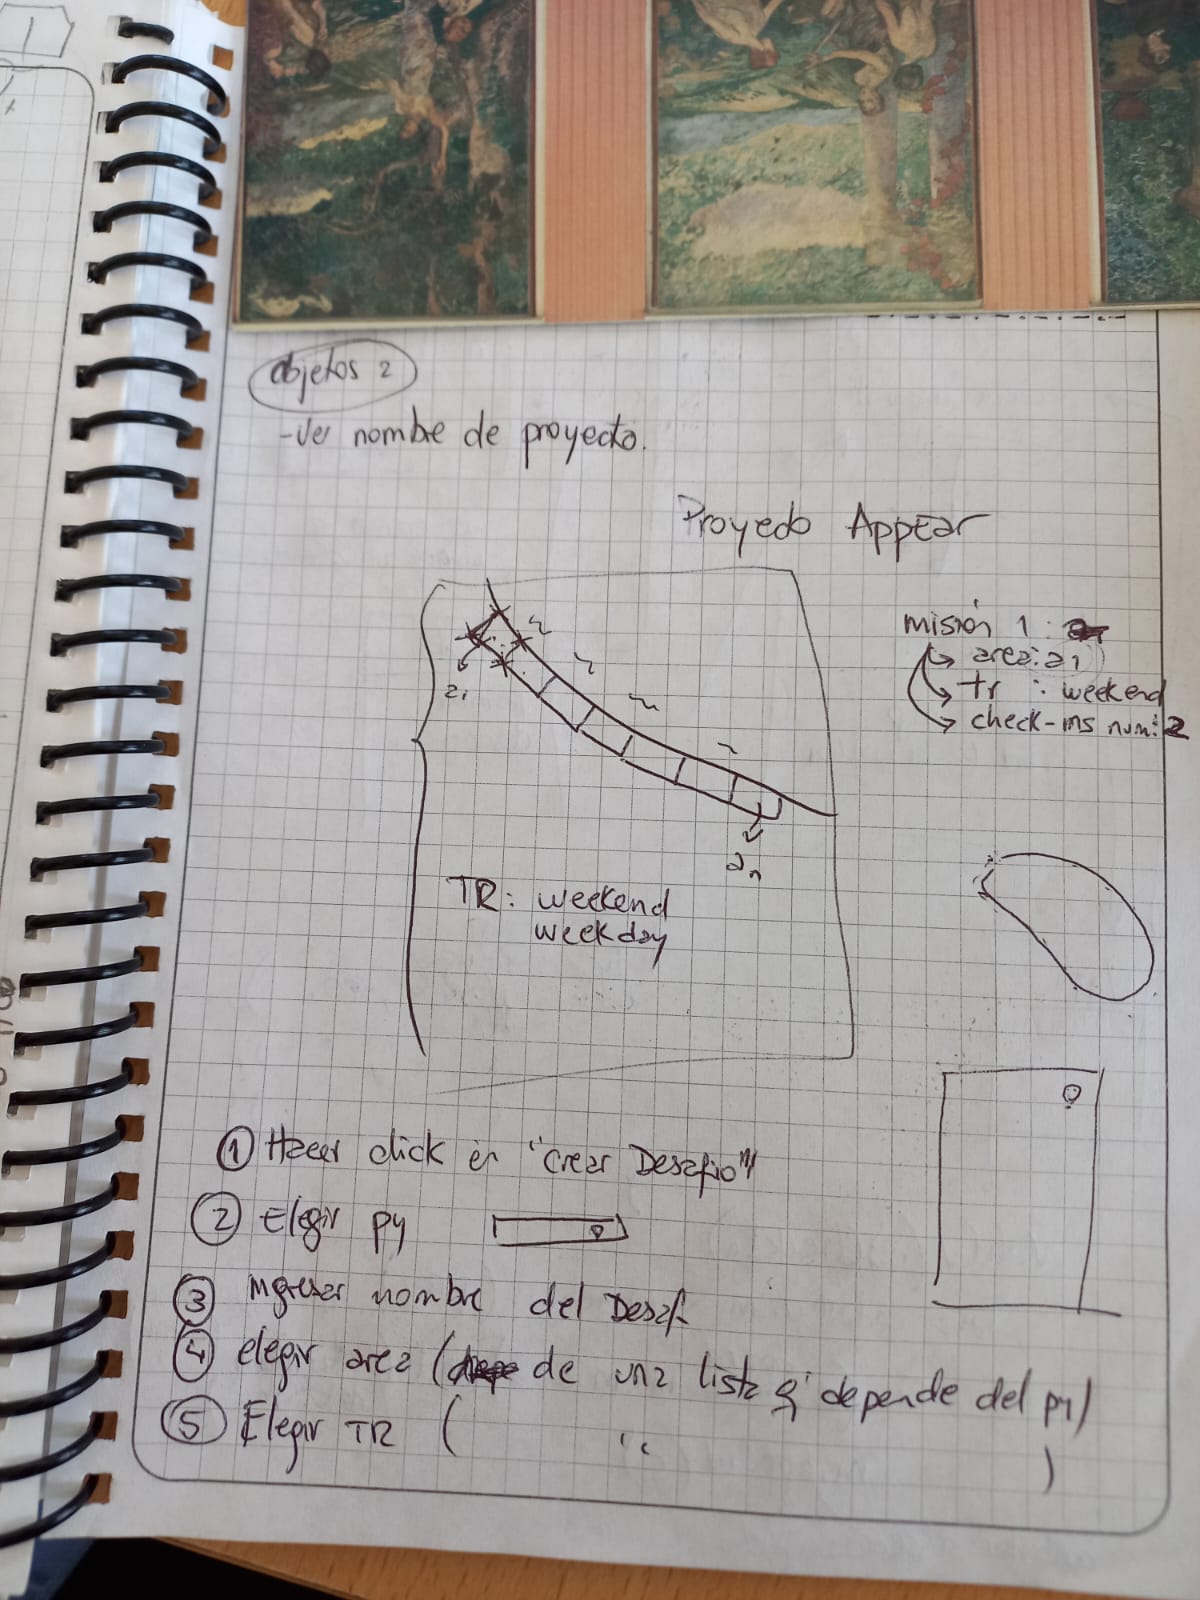 objetos 2
-Ver nombre de proyecto.
Proyecto AppEar
misión 1 :
area: a1
tr : weekend
check-ins num: 2
a1
an
TR: weekend
weekday
① Hacer click en "Crear Desafio"
② Elegir py
③ Ingresar nombre del Desaf.
④ elegir area (de una lista q' depende del py)
⑤ Elegir TR ( " )